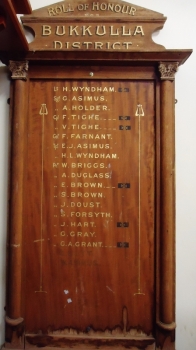 ROLL OF HONOUR
BUKKULLA
DISTRICT
H. WYNDHAM.
C. ASIMUS.
A. HOLDER.
F. TIGHE
V. TIGHE
F. FARNANT.
E.J. ASIMUS.
H.L. WYNDHAM.
W. BRIGGS.
A. DUGLASS
E. BROWN
S. BROWN.
J. DOUST.
S. FORSYTH.
J. HART.
C. GRAY.
C.A. GRANT.